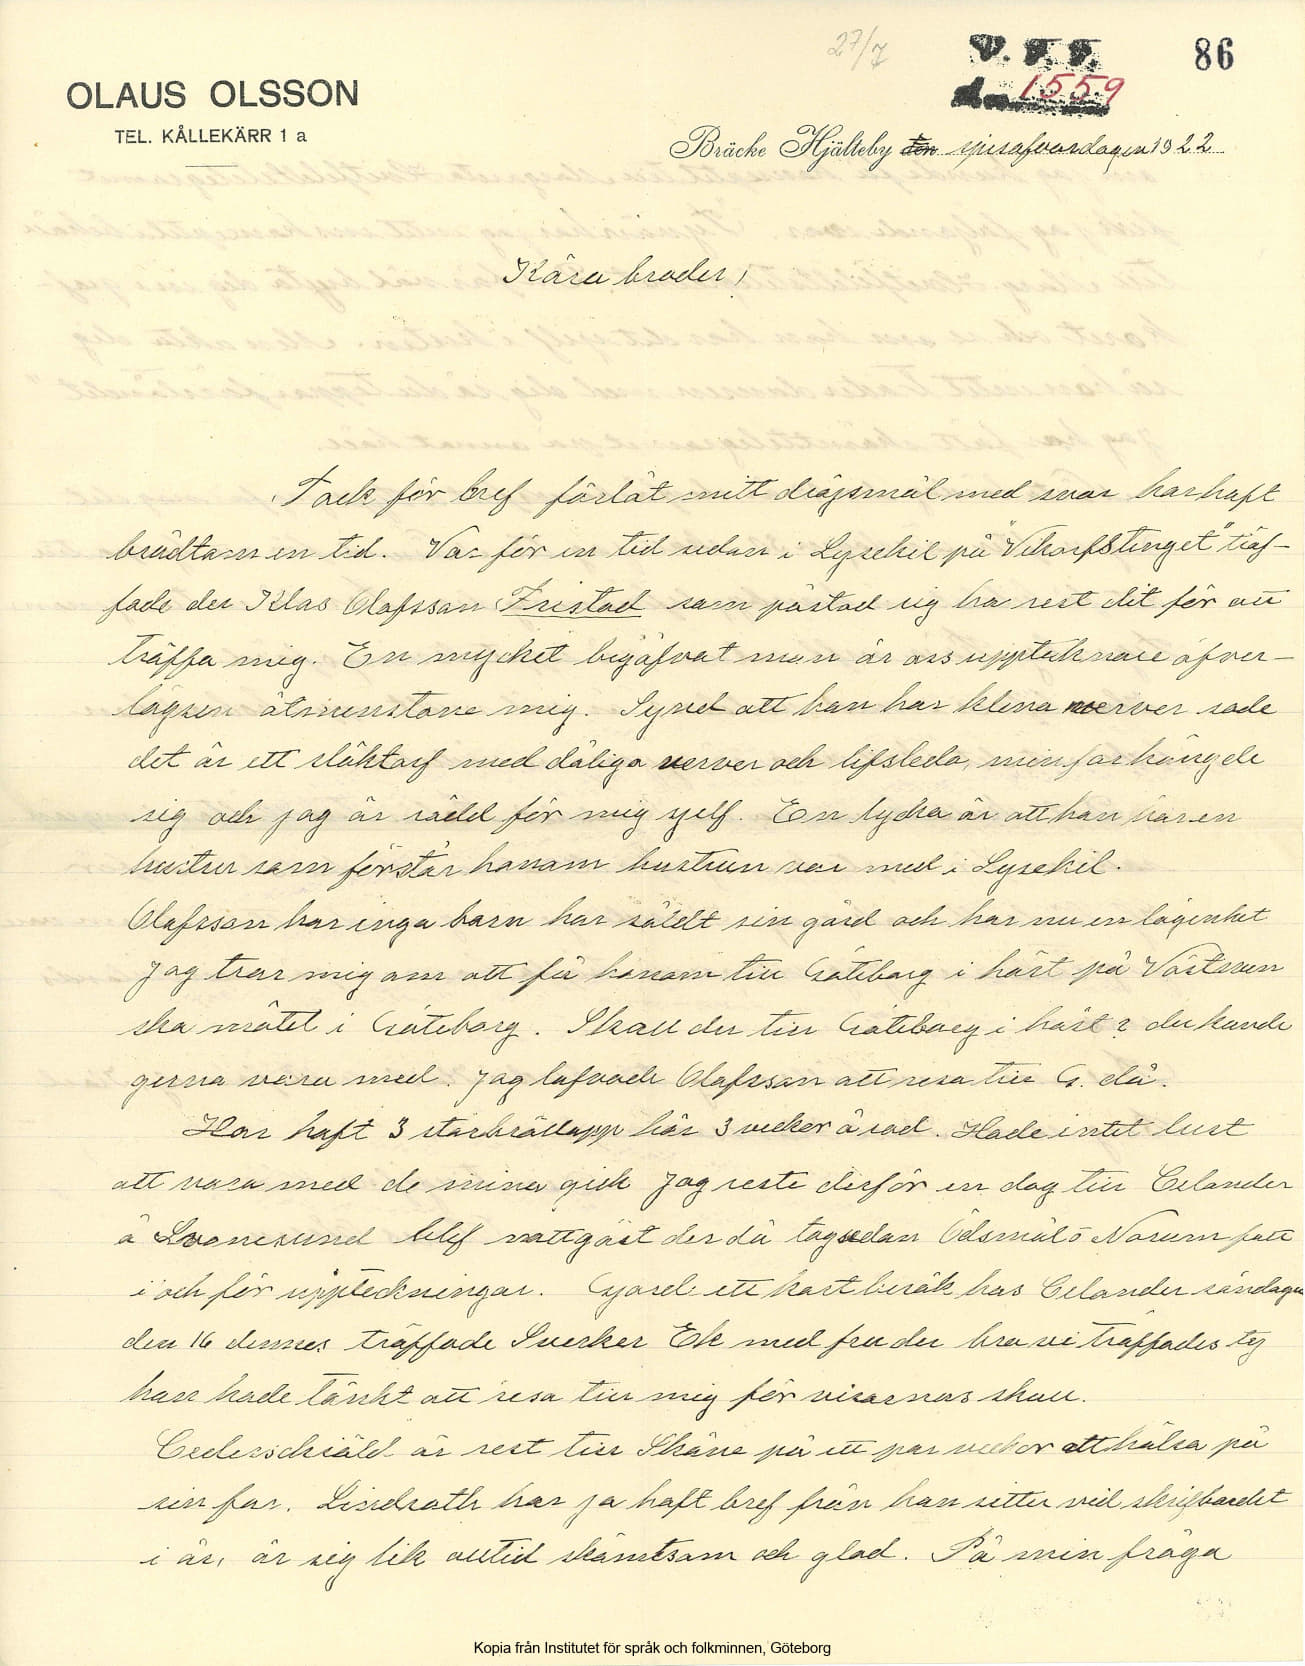 27/7
V. F. F.
d. 1559
86
OLAUS OLSSON
TEL. KÅLLEKÄRR 1 a
Bräcke Hjälteby den spisafvardagen 1922
Kära broder!
Tack för bref förlåt mitt dröjsmål med svar har haft
brådtom en tid. Var för en tid sedan i Lysekil på "Vikarfstinget" träf-
fade der Klas Olofsson Fristad som påstod sig ha rest dit för att
träffa mig. En mycket begåfvat man är oss upptecknare öfver-
lägsen åtminstone mig. Synd att han har klena nerver sade
det är ett släktarf med dåliga nerver och lifsleda, min far hängde
sig och jag är rädd för mig sjelf. En lycka är att han har en
hustru som förstår honom hustrun var med i Lysekil.
Olofsson har inga barn har såldt sin gård och har nu en lägenhet
Jag tror mig om att få honom till Göteborg i höst på Västsven
ska mötet i Göteborg. Skall du till Göteborg i höst? du kunde
gerna vara med. Jag lofvade Olofsson att resa till G. då.
Har haft 3 storbröllopp här 3 veckor å rad. Hade intet lust
att vara med de mina gick Jag reste derför en dag till Celander
å Svanesund blef nattgäst der då tog sedan Ödsmål o Norum fatt
i och för uppteckningar. Gjorde ett kort besök hos Celander söndagen
den 16 dennes träffade Sverker Ek med fru der bra vi träffades ty
han hade tänkt att resa till mig för visornas skull.
Cederschiöld är rest till Skåne på ett par veckor att hälsa på
sin far. Lindroth har ja haft bref från han sitter vid skrifbordet
i år, är sig lik alltid skämtsam och glad. På min fråga
Kopia från Institutet för språk och folkminnen, Göteborg